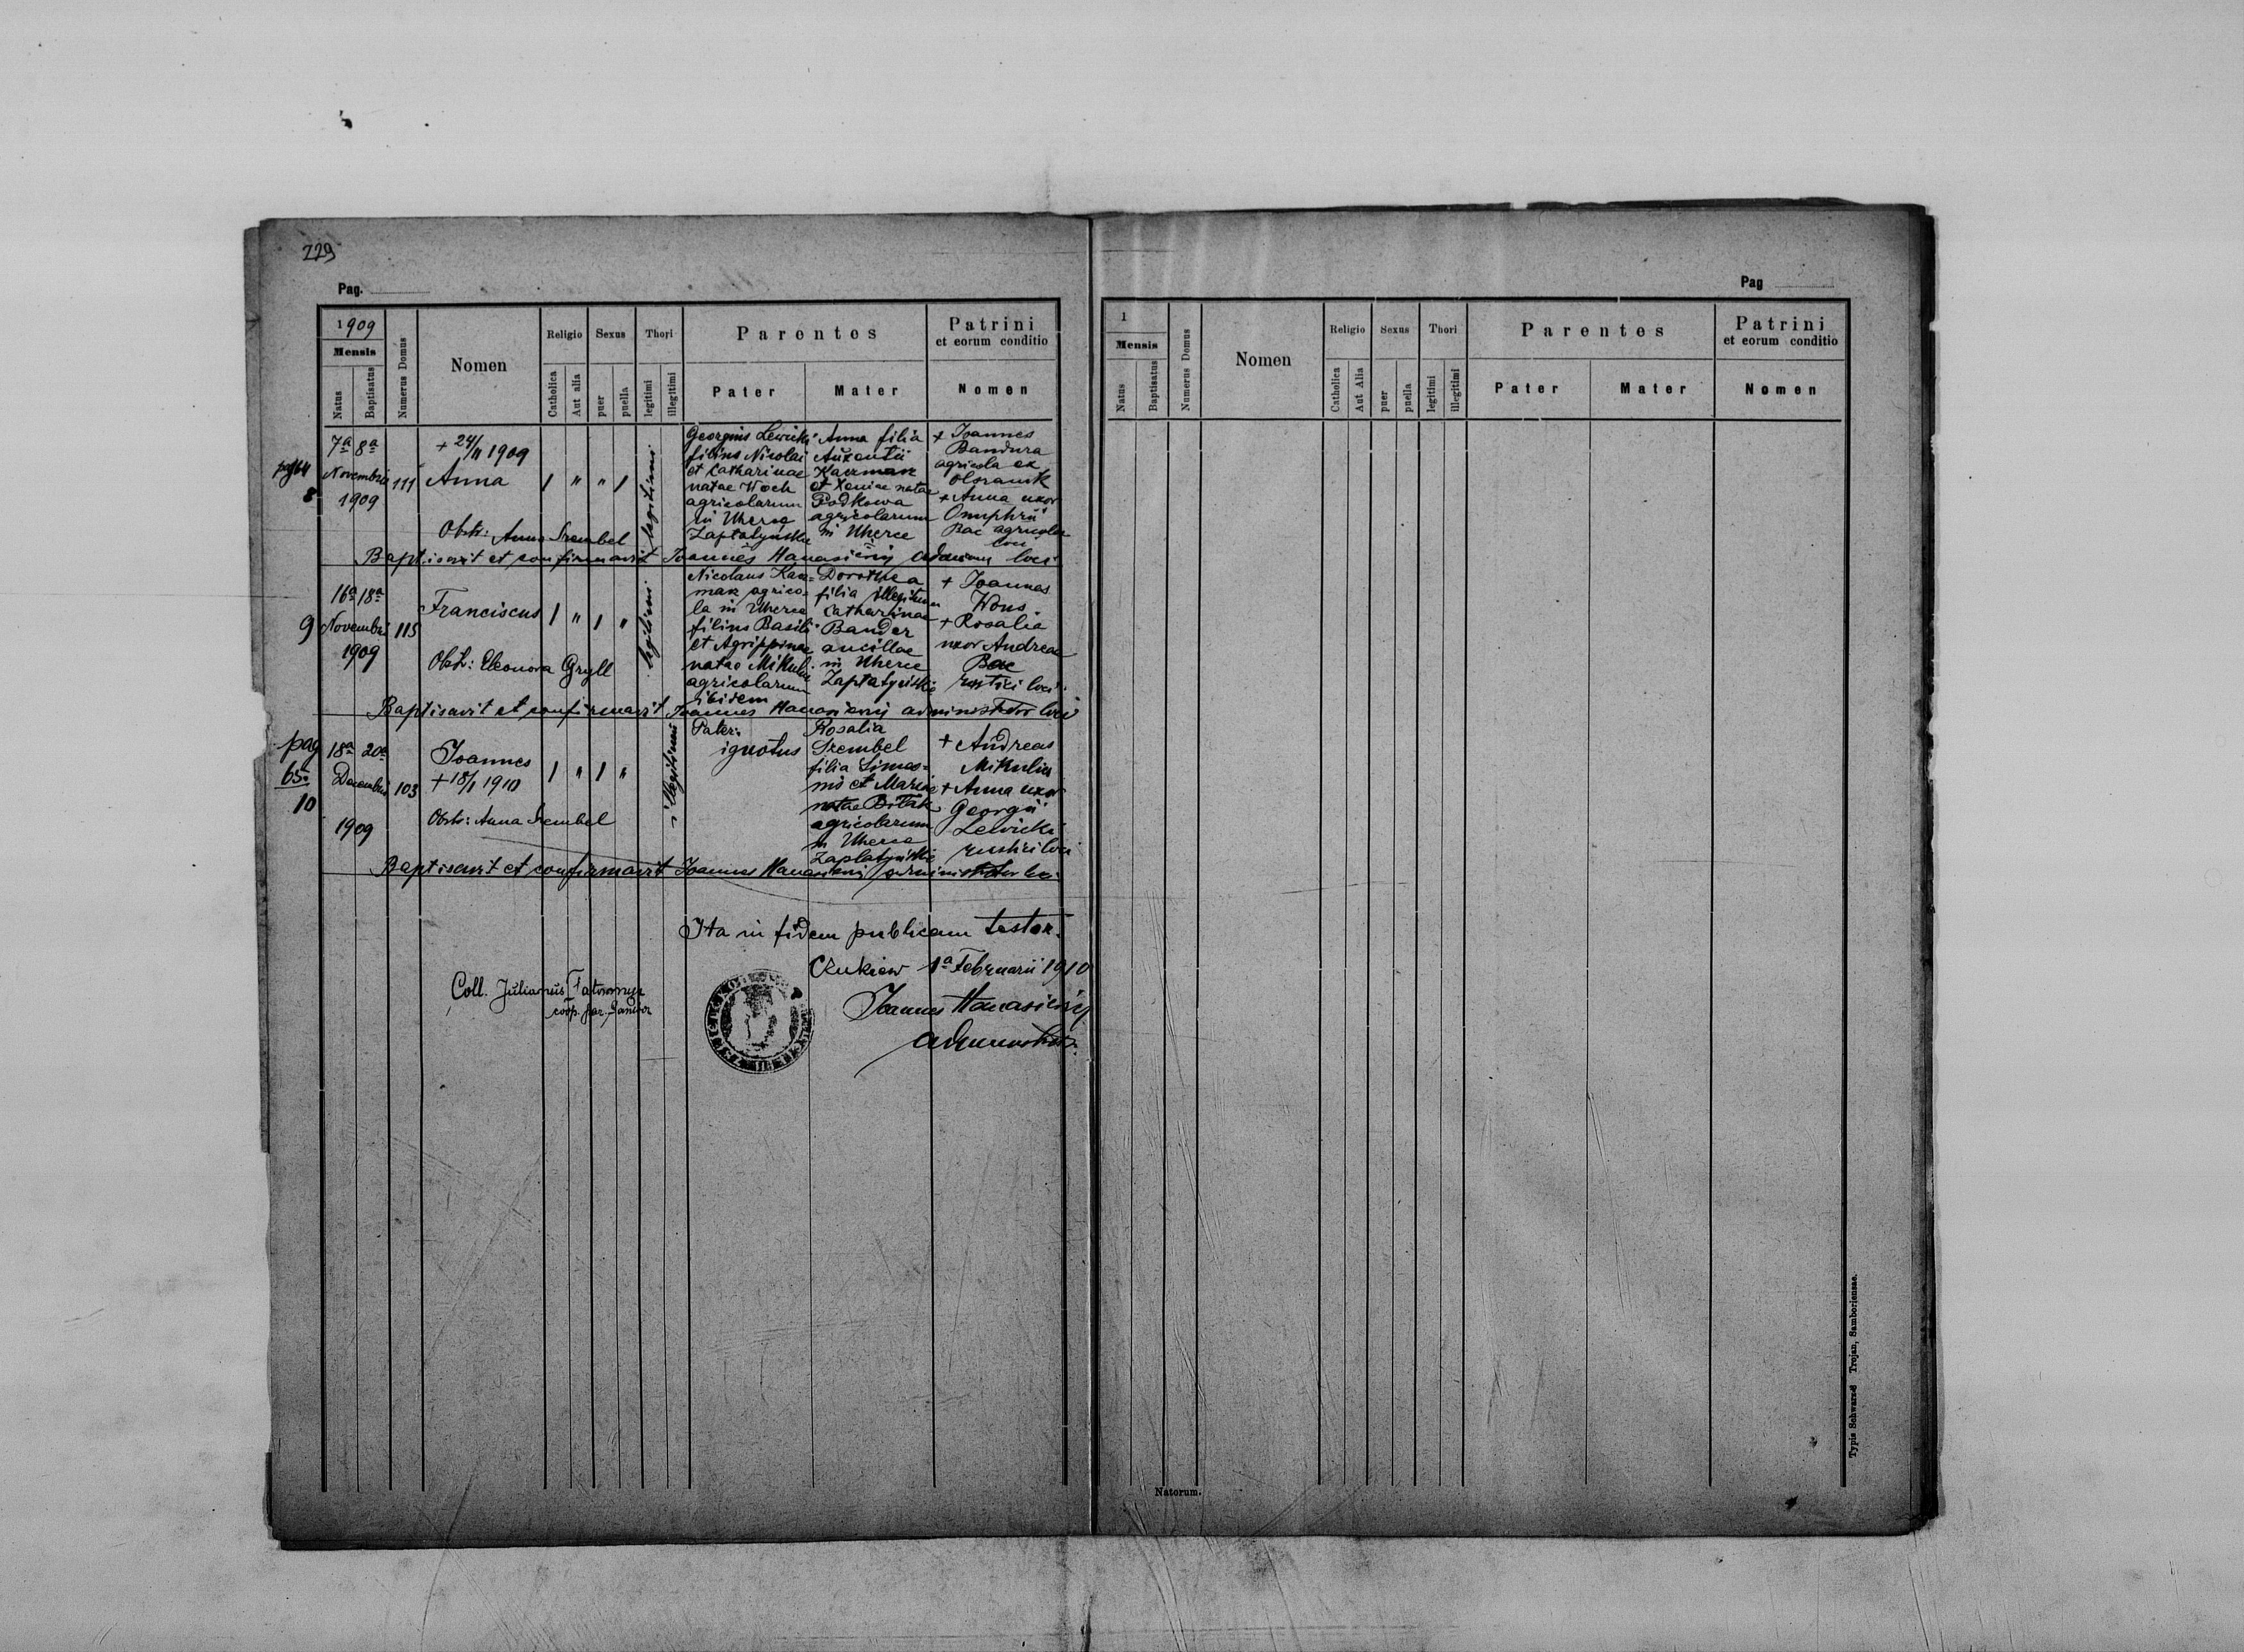 229
Pag.
1909
Mensis
Natus
Baptisatus
Numerus Domus
Nomen
Religio
Catholica
Aut alia
Sexus
puer
puella
Thori
legitimi
illegitimi
Parentes
Pater
Mater
Patrini
et eorum conditio
Nomen
pag 64
8
7a 8a
Novembris
1909
111
+ 24/11 1909
Anna
Obst: Anna Srembel
1 " " 1
legitimi
Georgius Lewicki
filius Nicolai
et Catharinae
natae Woch
agricolarum
in Uherce
Zaplatynskie
Anna filia
Auxentii
Kaczmar
et Xeniae natae
Podkowa
agricolarum
in Uherce
+ Joannes
Bandura
agricola ex
+ Anna uxor
Onuphrii
Bac agricolae
Baptisavit et confirmavit Joannes loci
9
16a 18a
Novembris
1909
115
Franciscus
Obst: Eleonora Gryll
1 " 1 "
legitimi
Nicolaus Kacz=
mar agrico=
la in Uherce
filius Basilii
et Agrippinae
natae Mikulic
agricolarum
ibidem
Dorothea
filia illegitima
Catharinae
Bander
ancillae
in Uherce
Zaplatynskie
+ Joannes
Wons
+ Rosalia
uxor Andreae
Bac
rustici loci
Baptisavit et confirmavit Joannes administrator loci
pag
65
10
18a 20a
Decembris
1909
103
Joannes
+ 18/1 1910
Obst: Anna Srembel
1 " 1 "
illegitimi
Pater:
ignotus
Rosalia
Srembel
filia
et Mariae
natae
agricolarum
in Uherce
Zaplatynskie
+ Andreas
Mikulic
+ Anna uxor
Georgii
Lewicki
rustici loci
Baptisavit et confirmavit Joannes administrator loci
Ita in fidem publicam testor.
Czukiew 1a Februarii 1910
Joannes
administrator
Coll. Julianus
coop. par. Sambor
Pag
1
Mensis
Natus
Baptisatus
Numerus Domus
Nomen
Religio
Catholica
Aut Alia
Sexus
puer
puella
Thori
legitimi
illegitimi
Parentes
Pater
Mater
Patrini
et eorum conditio
Nomen
Natorum.
Typis Schwarz & Trojan, Samboriensae.